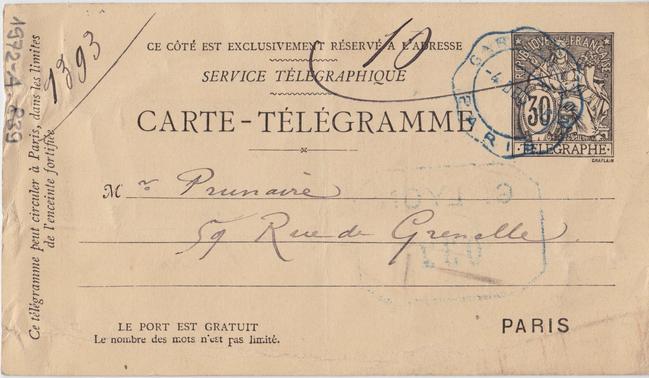 CE CÔTÉ EST EXCLUSIVEMENT RÉSERVÉ A L'ADRESSE
10
SERVICE TÉLÉGRAPHIQUE
CARTE-TÉLÉGRAMME
RÉPUBLIQUE FRANÇAISE
30
TÉLÉGRAPHE
CHAPLAIN
GARE
PARIS
Mr Prunaire
59 Rue de Grenelle
G. LYON
PARIS
LE PORT EST GRATUIT
Le nombre des mots n'est pas limité.
Ce télégramme peut circuler à Paris, dans les limites
de l'enceinte fortifiée
1393
1972-4 839